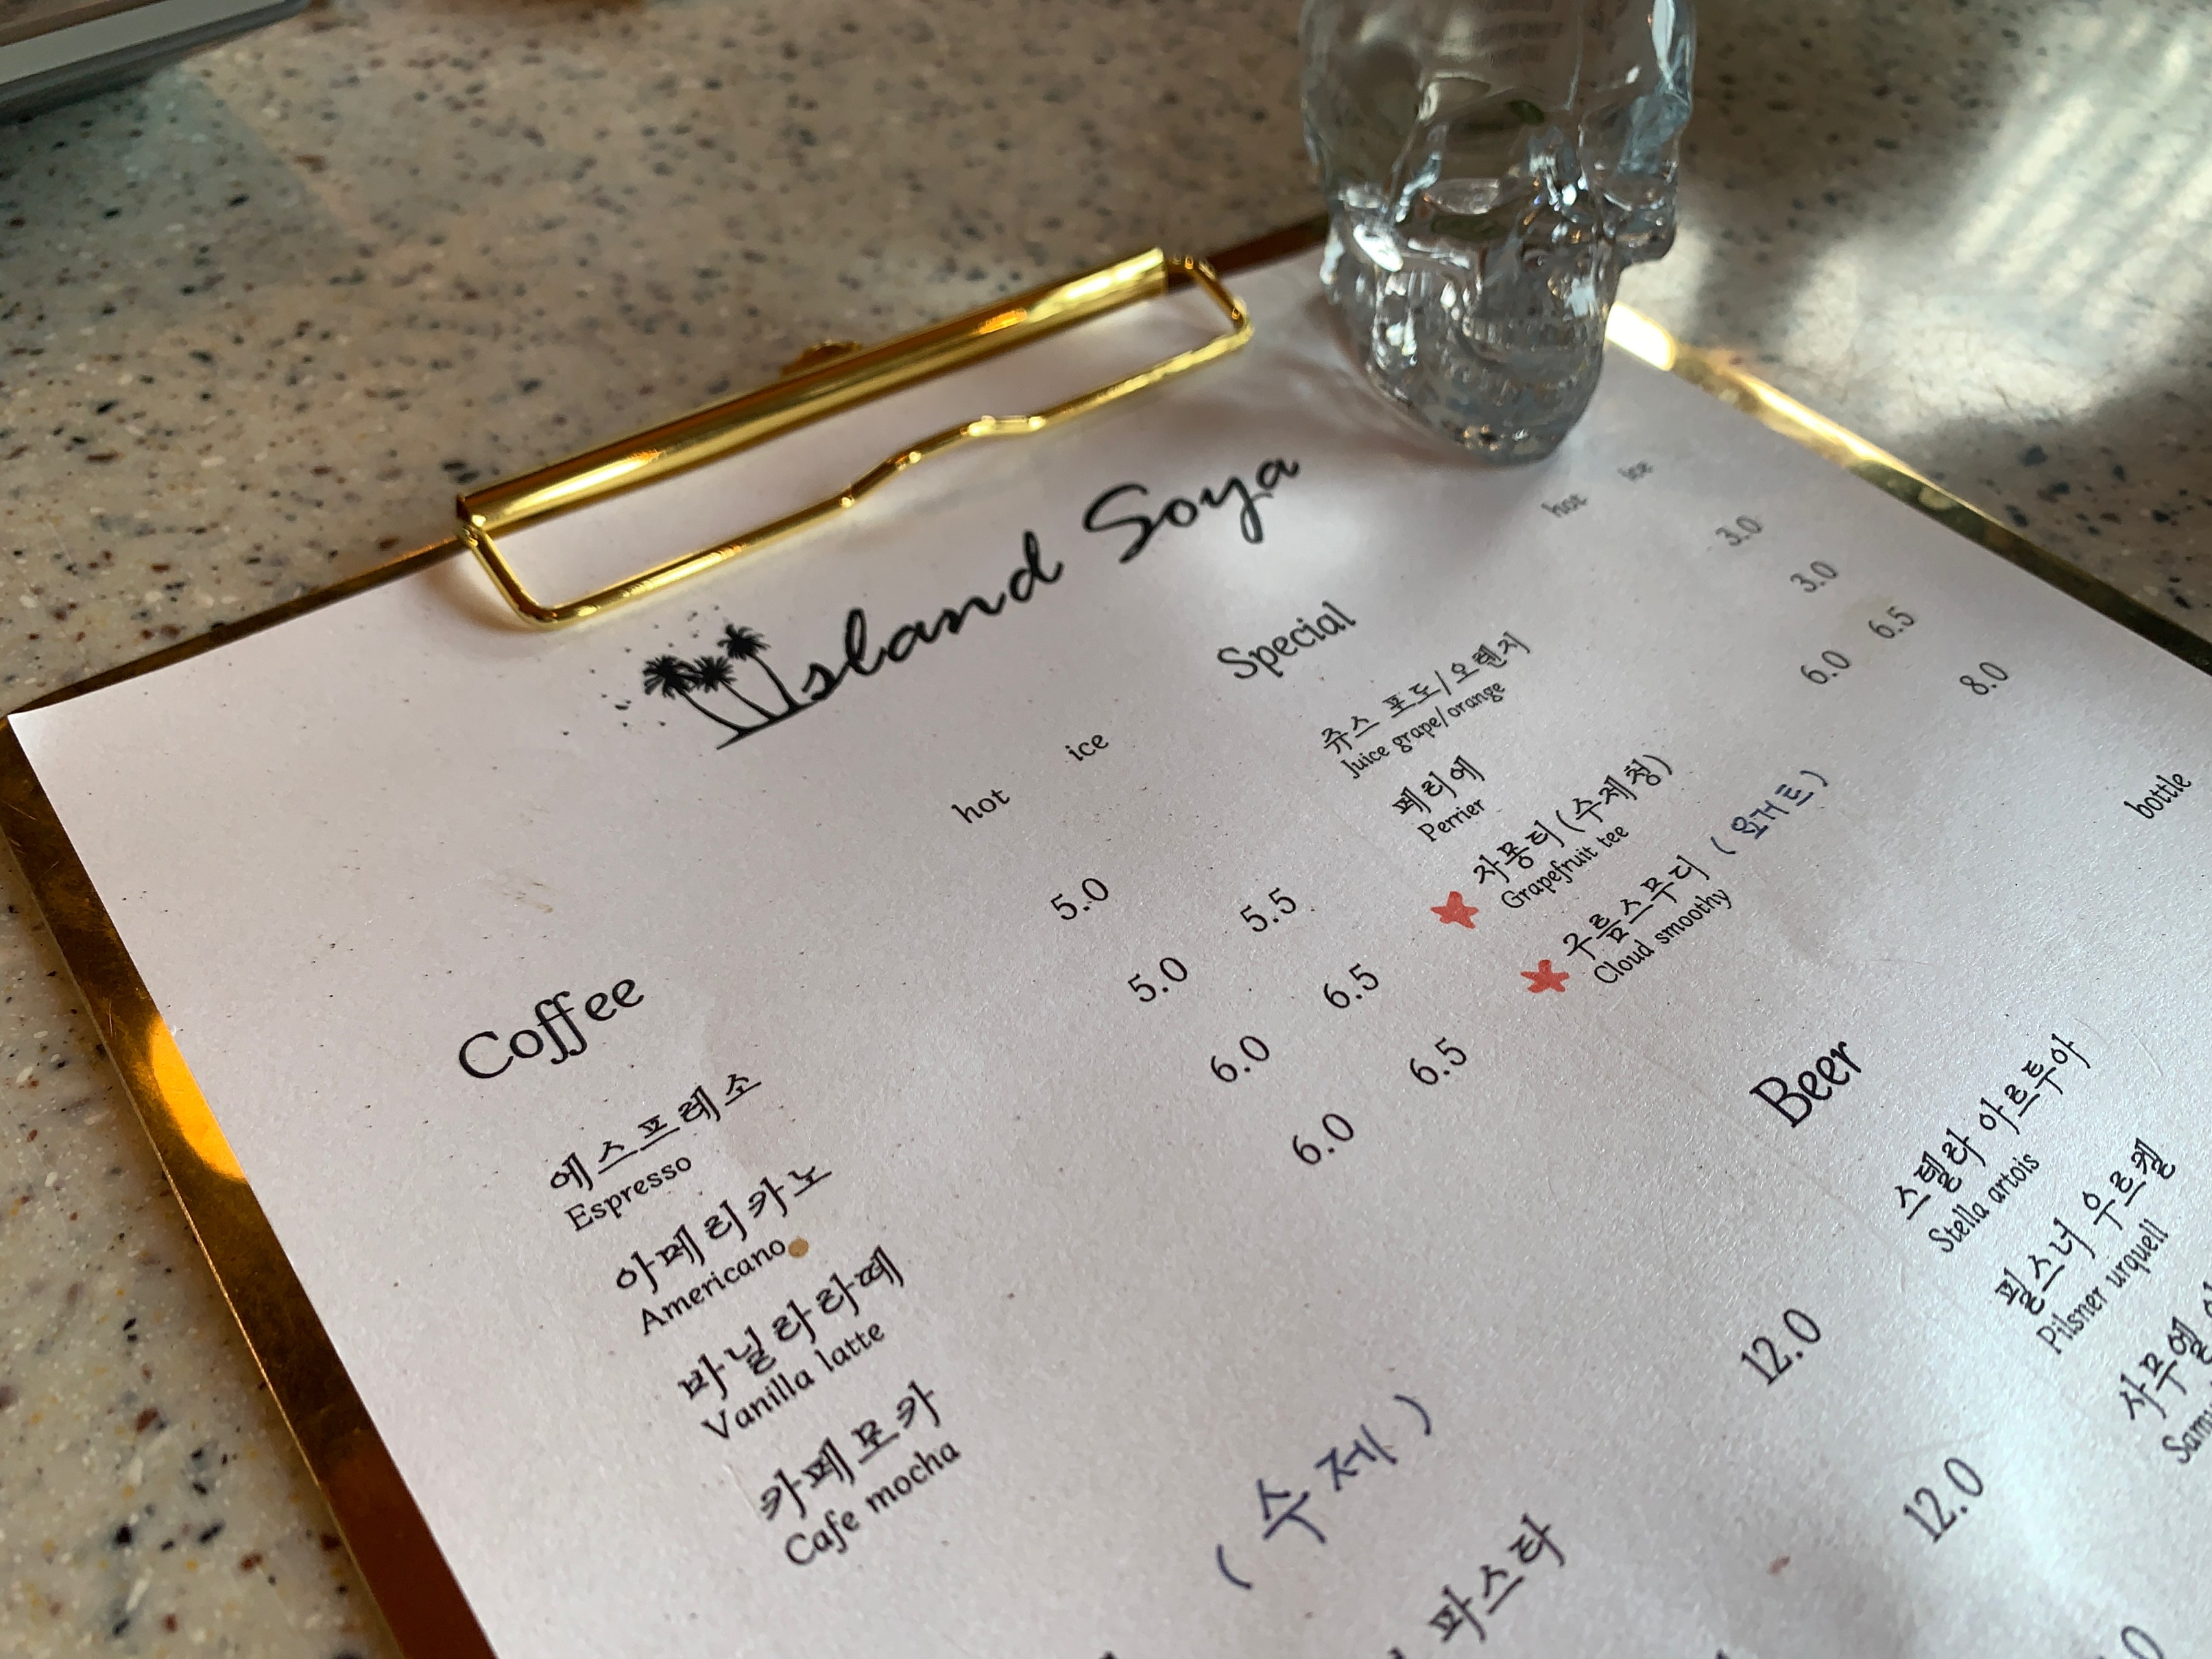 Island Soya
Coffee
hot ice
에스프레소 5.0
Espresso
아메리카노 5.0 5.5
Americano
바닐라라떼 6.0 6.5
Vanilla latte
카페모카 6.0 6.5
Cafe mocha
Special
hot ice
쥬스 포도/오렌지 3.0
Juice grape/orange
페리에 3.0
Perrier
자몽티 (수제청) 6.0 6.5
Grapefruit tee
구름스무디 (요거트) 8.0
Cloud smoothy
(수제)
파스타
12.0
12.0
Beer
bottle
스텔라 아르투아
Stella artois
필스너 우르켈
Pilsner urquell
사무엘